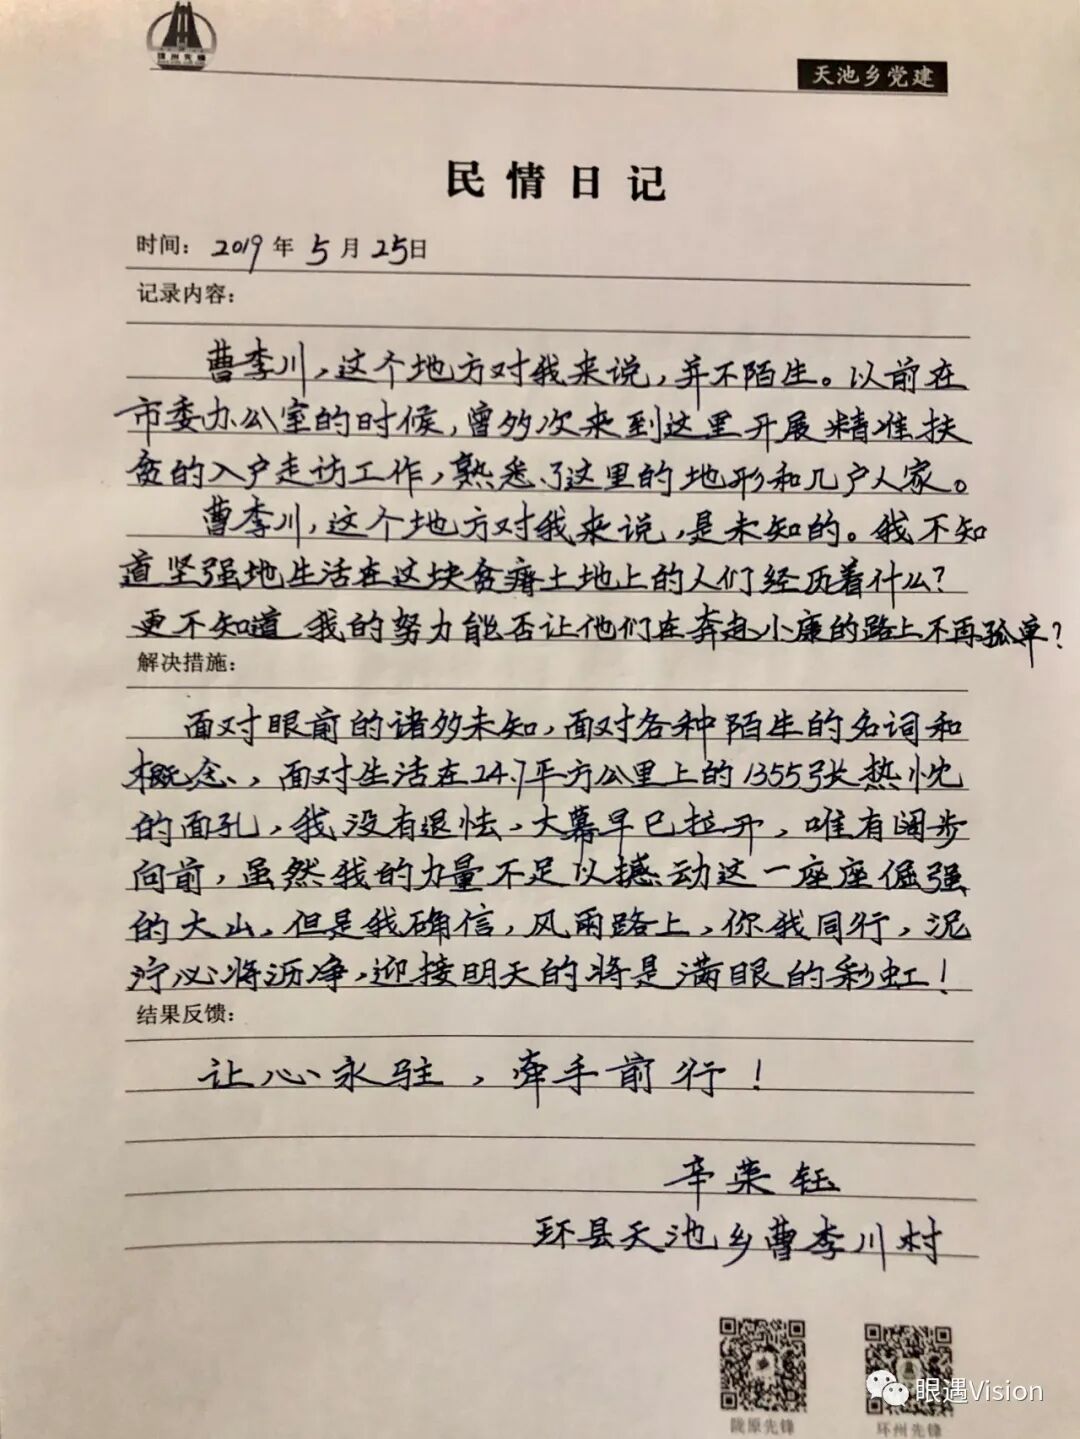 环州先锋
天池乡党建
民情日记
时间：2019年5月25日
记录内容：
曹李川，这个地方对我来说，并不陌生。以前在
市委办公室的时候，曾多次来到这里开展精准扶
贫的入户走访工作，熟悉了这里的地形和几户人家。
曹李川，这个地方对我来说，是未知的。我不知
道坚强地生活在这块贫瘠土地上的人们经历着什么？
更不知道，我的努力能否让他们在奔赴小康的路上不再孤单？
解决措施：
面对眼前的诸多未知，面对各种陌生的名词和
概念，面对生活在24.7平方公里上的1355张热忱
的面孔，我没有退怯，大幕早已拉开，唯有阔步
向前，虽然我的力量不足以撼动这一座座倔强
的大山，但是我确信，风雨路上，你我同行，泥
泞必将沥净，迎接明天的将是满眼的彩虹！
结果反馈：
让心永驻，牵手前行！
辛荣钰
环县天池乡曹李川村
陇原先锋
环州先锋
眼遇Vision